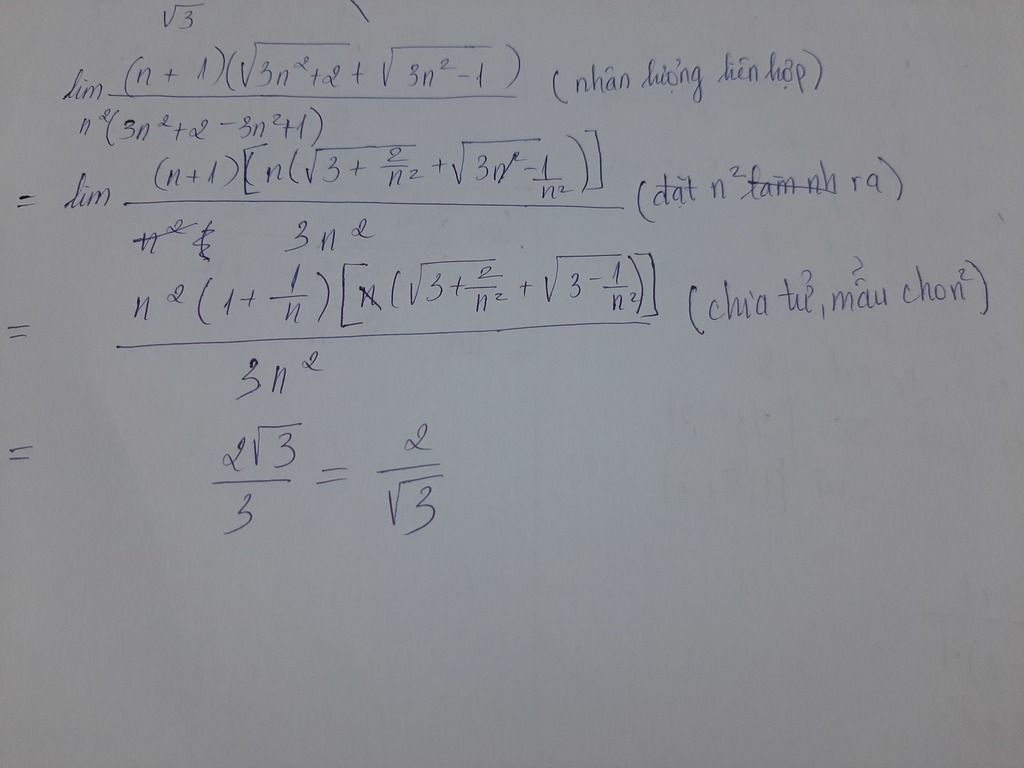 √3
lim (n + 1)(√(3n²+2) + √(3n²-1)) / n²(3n²+2-3n²+1) (nhân lượng liên hợp)
= lim (n+1)[n(√(3+2/n²) + √(3n²-1/n²))] / 3n² (đặt n² ra)
= n²(1+1/n)[n(√(3+2/n²) + √(3-1/n²))] / 3n² (chia tử, mẫu cho n²)
= 2√3/3 = 2/√3